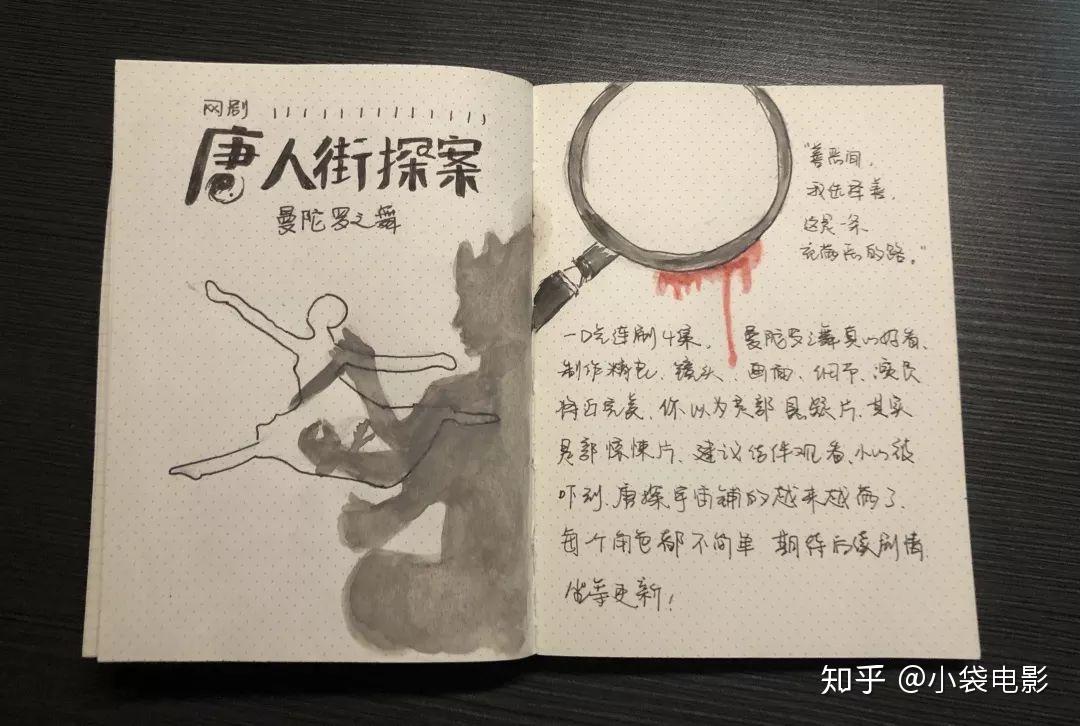 网剧
唐人街探案
曼陀罗之舞
"善恶间，
我选择善，
这是一条
充满恶的路。"
一口气连刷4集， 曼陀罗之舞真心好看、
制作精良、镜头、画面、细节、演员
将近完美、你以为是部悬疑片、其实
是部惊悚片、建议结伴观看、小心被
吓到、唐探宇宙铺的越来越满了、
每个角色都不简单 期待后续剧情
坐等更新！
知乎 @小袋电影